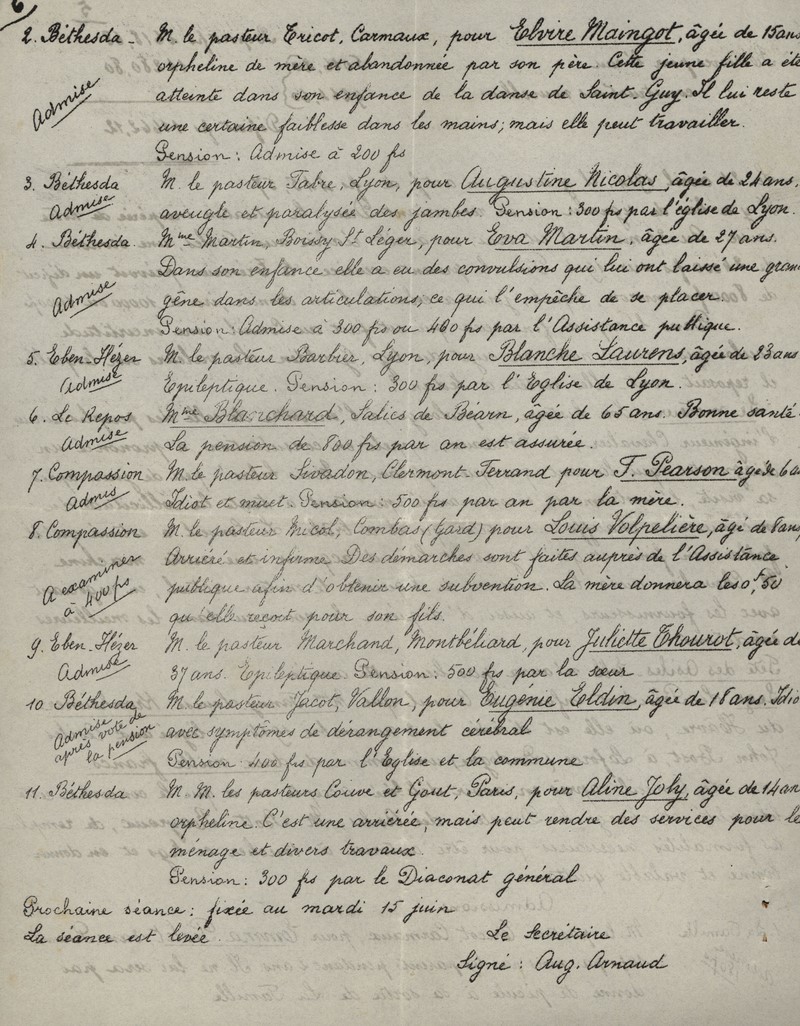 6/
2. Béthesda - M. le pasteur Tricot, Carmaux, pour Elvire Maingot, âgée de 15 ans
orpheline de mère et abandonnée par son père. Cette jeune fille a été
Admise
atteinte dans son enfance de la danse de Saint-Guy. Il lui reste
une certaine faiblesse dans les mains; mais elle peut travailler.
Pension: Admise à 200 frs
3. Béthesda M. le pasteur Fabre, Lyon, pour Augustine Nicolas, âgée de 24 ans,
Admise aveugle et paralysée des jambes. Pension: 300 frs par l'église de Lyon.
4. Béthesda. Mme Martin, Boissy St Léger, pour Eva Martin, âgée de 27 ans.
Dans son enfance elle a eu des convulsions qui lui ont laissé une gran
Admise
gêne dans les articulations, ce qui l'empêche de se placer.
Pension: Admise à 300 frs ou 400 frs par l'Assistance publique.
5. Eben-Hézer M. le pasteur Barbier, Lyon, pour Blanche Laurens, âgée de 23 ans
Admise Epileptique. Pension: 300 frs par l'Eglise de Lyon.
6. Le Repos Mme Blanchard, Salies de Béarn, âgée de 65 ans. Bonne santé.
Admise La pension de 800 frs par an est assurée.
7. Compassion M. le pasteur Livadon, Clermont-Ferrand pour F. Pearson âgé de 6 a
Admis Idiot et muet. Pension: 500 frs par an par la mère.
8. Compassion M. le pasteur Nicol, Combas (Gard) pour Louis Volpelière, âgé de 8 ans
Arriéré et infirme. Des démarches sont faites auprès de l'Assistance
A examiner
à 400 frs
publique afin d'obtenir une subvention. La mère donnera les 0f,50
qu'elle reçoit pour son fils.
9. Eben-Hézer M. le pasteur Marchand, Montbéliard, pour Juliette Thourot, âgée de
Admise 37 ans. Epileptique. Pension: 500 frs par la sœur
10 Béthesda M. le pasteur Jacot, Vallon, pour Eugénie Eldin, âgée de 18 ans. Idio
Admise
après vote de
la pension
avec symptômes de dérangement cérébral
Pension 400 frs par l'Eglise et la commune
11. Béthesda M. M. les pasteurs Couve et Gout, Paris, pour Aline Joly, âgée de 14 an
orpheline. C'est une arriérée, mais peut rendre des services pour le
ménage et divers travaux.
Pension: 300 frs par le Diaconat général
Prochaine séance: fixée au mardi 15 juin
La séance est levée. Le Secrétaire
Signé: Aug. Arnaud